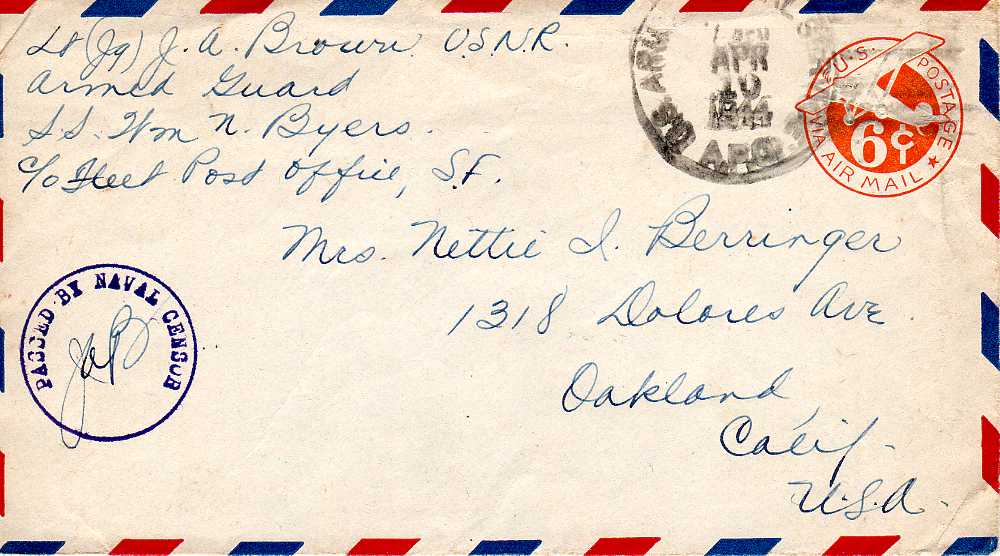 Lt (Jg) J. A. Brown U.S.N.R.
Armed Guard
S.S. Wm N. Byers.
c/o Fleet Post Office, S.F.
APR
10
1944
A.P.O.
U.S. POSTAGE
6¢
VIA AIR MAIL
Mrs. Nettie I. Berringer
1318 Dolores Ave.
Oakland,
Calif.
U.S.A.
PASSED BY NAVAL CENSOR
JAB